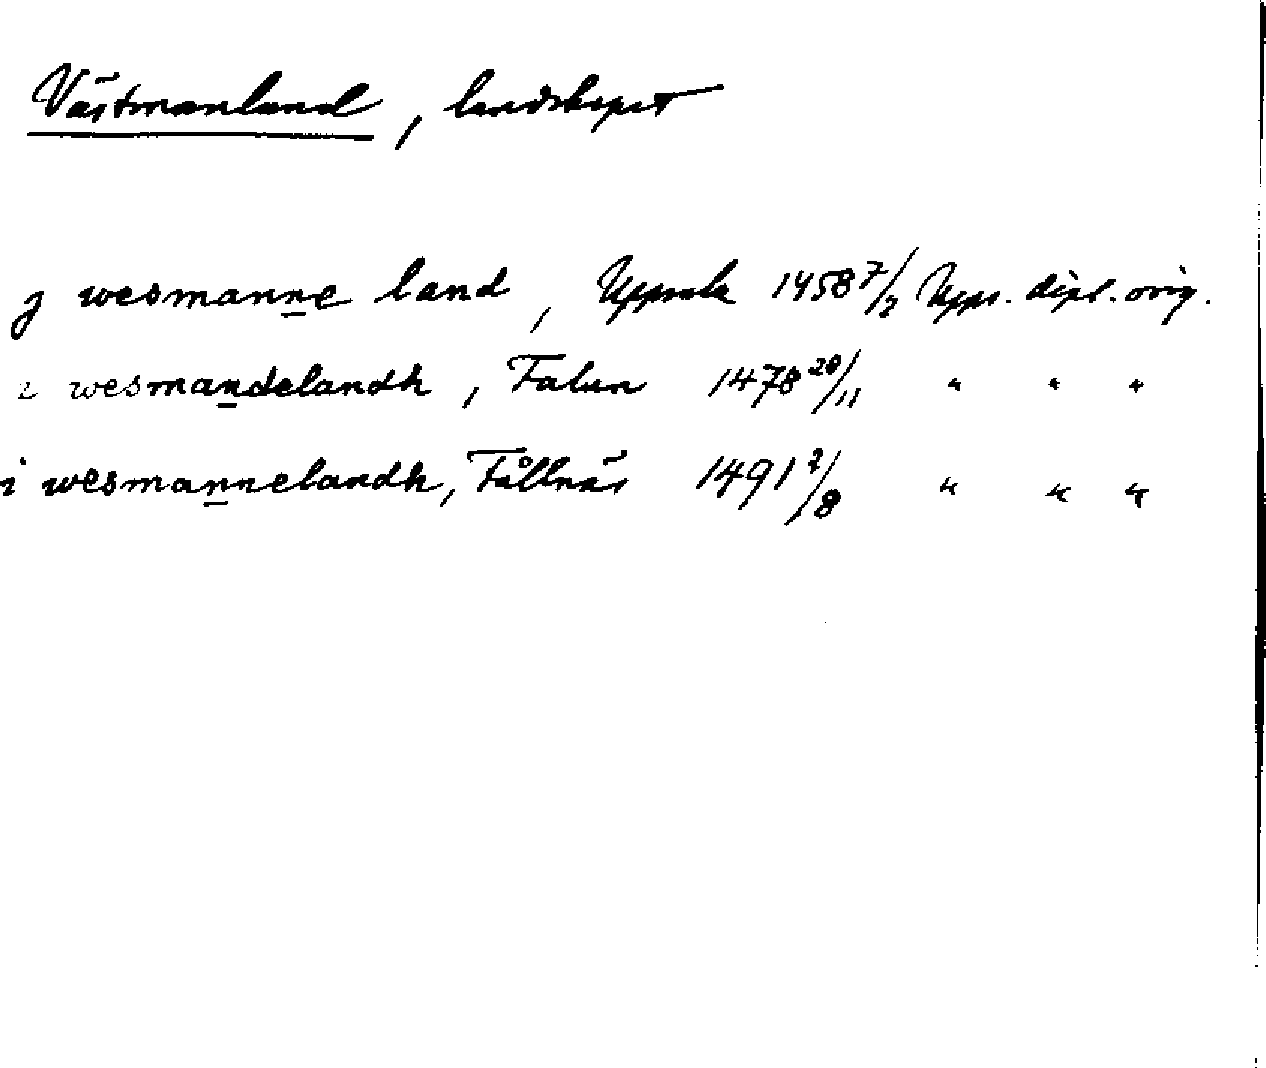 Västmanland, landskapet
j wesmanne land, Uppsala 1458 7/2 Upps. dipl. orig.
i wesmandelandh, Falun 1478 20/11 " " "
i wesmannelandh, Fållnäs 1491 2/8 " " "